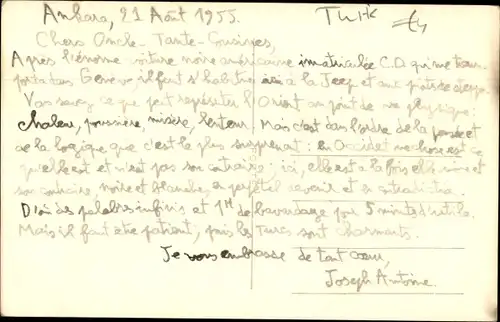 Ankara, 21 Août 1955.
Turk
Chers Oncle - Tante - Cousines,
Après l'énorme voiture noire américaine immatriculée C.D. qui me trans-
porta dans Genève, il faut s'habituer à la Jeep et aux pistes de steppe.
Vous savez ce que peut représenter l'Orient au point de vue physique:
chaleur, poussière, misère, lenteur. Mais c'est dans l'ordre de la pensée et
de la logique que c'est le plus surprenant: en Occident une chose est ce
qu'elle est et n'est pas son contraire; ici, elle est à la fois elle-même et
son contraire, noire et blanche, en perpétuel et en
D'où des palabres infinis et 1H de bavardage pour 5 minutes d'utile.
Mais il faut être patient, puis les Turcs sont charmants.
Je vous embrasse de tout cœur,
Joseph Antoine.